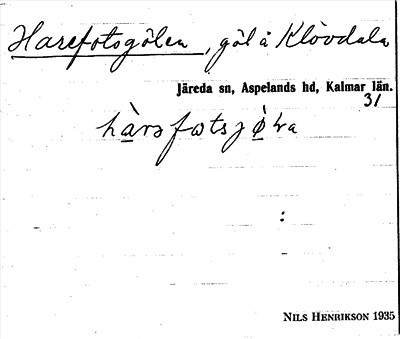 Harefotsgölen, göl å Klövdala
Järeda sn, Aspelands hd, Kalmar län.
31
:
NILS HENRIKSON 1935